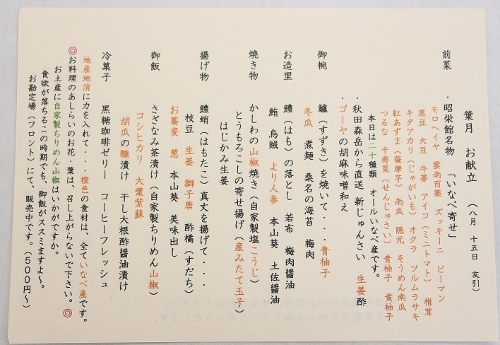 葉月　お献立　（八月　十五日　友引）
前菜　・昭栄館名物　「いなべ寄せ」
モロヘイヤ　雲南百薬　ズッキーニ　ピーマン
黒豆　大豆　牛蒡　アイコ（ミニトマト）　椎茸
キタアカリ（じゃがいも）　オクラ　ツルムラサキ
紅あずま（薩摩芋）　南瓜　隠元　そうめん南瓜
つるな　千寿菜（せんじゅさい）　青柚子　黄柚子
本日は二十種類　オールいなべ産です。
・秋田森岳から直送　新じゅんさい　生姜酢
・ゴーヤの胡麻味噌和え
御椀　鱸（すずき）を焼いて・・・青柚子
冬瓜　煮麺　桑名の海苔　梅肉
お造里　鱧（はも）の落とし　若布　梅肉醤油
鮪　烏賊　より人参　本山葵　土佐醤油
焼き物　かしわの山椒焼き（自家製塩こうじ）
とうもろこしの寄せ揚げ（産みたて玉子）
はじかみ生姜
揚げ物　鱧蛸（はもたこ）真丈を揚げて・・・
枝豆　生姜　獅子唐　酢橘（すだち）
お蕎麦　葱　本山葵　美味出し
御飯　さざなみ茶漬け（自家製ちりめん山椒）
コシヒカリ　大葉紫蘇
胡瓜の糠漬け　干し大根酢醤油漬け
冷菓子　黒糖珈琲ゼリー　コーヒーフレッシュ
地産地消に力を入れて・・・橙色の食材は、全ていなべ産です。
◎お料理のあしらいのお花、葉は、召し上がらないで下さい。◎
お土産に自家製ちりめん山椒はいかがですか。
食欲が落ちるこの時期でも、御飯がススミますよ～。
お勘定場（フロント）にて、販売中です。（５００円～）